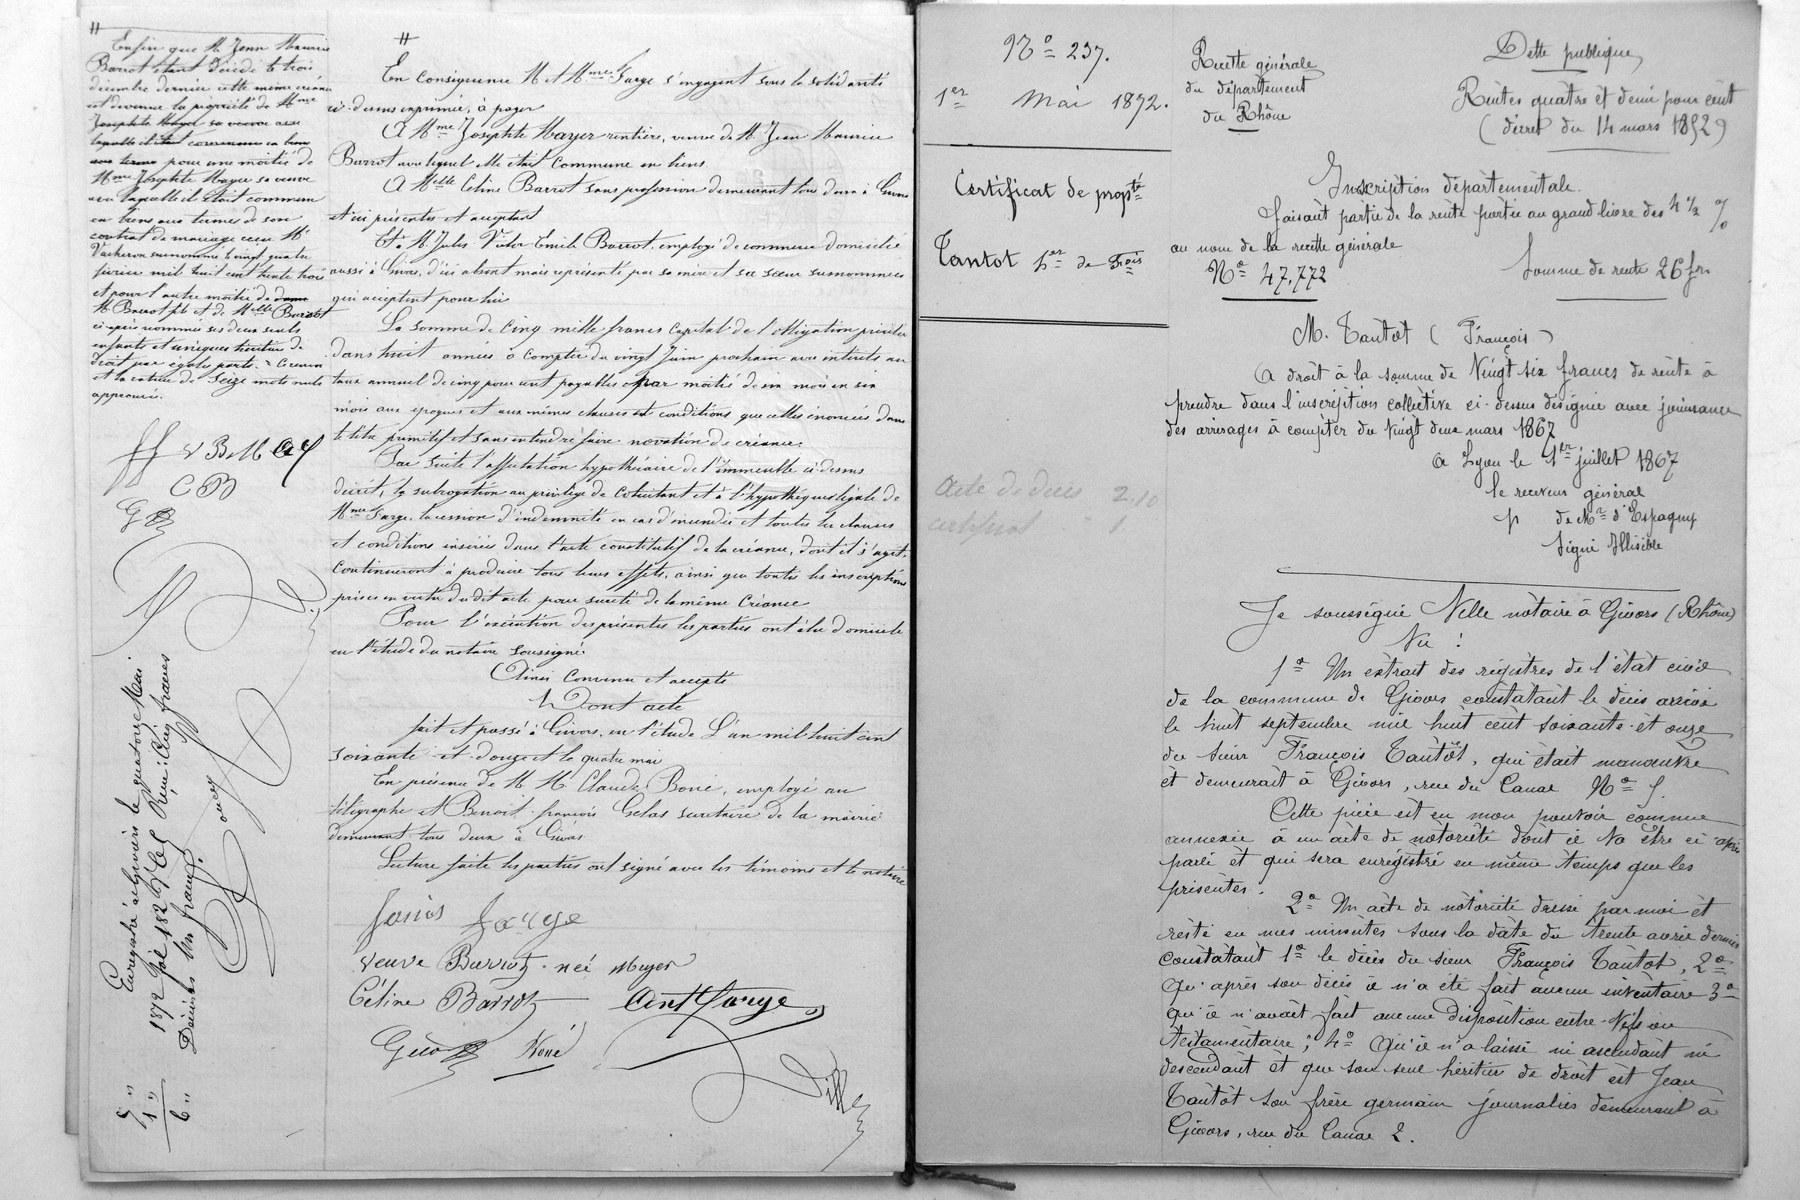 Enfin que M. Jean Maurice
Barrot étant décédé le trois
décembre dernier cette même créance
est devenue la propriété de Mme
Josephte Mayer sa veuve avec
laquelle il était commun en biens
pour une moitié de
Mme Josephte Mayer sa veuve
avec laquelle il était commun
en biens aux termes de son
contrat de mariage reçu Me
Vacheron surnommé le vingt quatre
février mil huit cent trente trois
et pour l'autre moitié de
M. Barrot fils et de Melle Barrot
ci-après nommés ses deux seuls
enfants et uniques héritiers de
droit par égales parts.
et la rature de seize mots nuls
approuvés.
V B M
C B
G B
Enregistré à Givors le quatorze Mai
1872 fol 182 Reçu: Cinq francs
Décimes un franc.
5 "
1 "
6 "
En conséquence M. et Mme Farge s'engagent sous la solidarité
ci-dessus exprimée, à payer
A Mme Josephte Mayer rentière, veuve de M. Jean Maurice
Barrot avec lequel elle était commune en biens
A Melle Céline Barrot sans profession demeurant tous deux à Givors
et ici présentes et acceptant
Et à M. Jules Victor Emile Barrot, employé de commerce domicilié
aussi à Givors, d'ici absent mais représenté par sa mère et sa sœur surnommées
qui acceptent pour lui
La somme de Cinq mille francs Capital de l'obligation précitée
dans huit années à compter du vingt Juin prochain avec intérêts au
taux annuel de cinq pour cent payables par moitié de six mois en six
mois aux époques et aux mêmes clauses et conditions que celles énoncées dans
le titre primitif et sans entendre faire novation de créance.
Par suite l'affectation hypothécaire de l'immeuble ci-dessus
décrit, la subrogation au privilège de Colicitant et à l'hypothèque légale de
Mme Farge, la cession d'indemnité en cas d'incendie et toutes les clauses
et conditions insérées dans l'acte constitutif de la créance, dont il s'agit
Continueront à produire tous leurs effets, ainsi que toutes les inscriptions
prises en vertu du dit acte pour sureté de la même Créance
Pour l'exécution des présentes les parties ont élu domicile
en l'étude du notaire soussigné
Ainsi convenu et accepté
Dont acte
fait et passé à Givors, en l'étude L'an mil huit cent
soixante-et-douze et le quatre mai
En présence de M. M. Claude Boné, employé au
télégraphe et Benoit-françois Gelas secrétaire de la mairie
demeurant tous deux à Givors
Lecture faite les parties ont signé avec les témoins et le notaire
Farge
veuve Barrot née Mayer
Céline Barrot Ant Farge
Boné
No 237.
1er Mai 1872.
Certificat de propté
Tantot her de Frois
Acte de décès 2.10
certificat " 1
Recette générale
du département
du Rhône
Dette publique
Rentes quatre et demi pour cent
(décret du 14 mars 1852)
Inscription départementale.
faisant partie de la rente portée au grand livre des 4 1/2 %
au nom de la recette générale
No 47,772
Somme de rente 26 fr.
M. Tantôt (François)
A droit à la somme de Vingt six francs de rente à
prendre dans l'inscription collective ci-dessus désignée avec jouissance
des arrérages à compter du Vingt deux mars 1867
A Lyon le 1er juillet 1867
le receveur général
p de Mr d'Espagny
Signé Illisible
Je soussigné Ville notaire à Givors (Rhône)
Vu :
1o Un extrait des registres de l'état civil
de la commune de Givors constatant le décès arrivé
le huit septembre mil huit cent soixante-et-onze
du sieur François Tantôt, qui était manœuvre
et demeurait à Givors, rue du Canal No 5.
Cette pièce est en mon pouvoir comme
annexée à un acte de notoriété dont il va être ci-après
parlé et qui sera enregistré en même temps que les
présentes.
2o Un acte de notoriété dressé par moi et
resté en mes minutes sous la date du trente avril dernier
constatant 1o le décès du sieur François Tantôt, 2o
Qu'après son décès il n'a été fait aucun inventaire 3o
qu'il n'avait fait aucune disposition entre-vifs ou
testamentaire; 4o Qu'il n'a laissé ni ascendant ni
descendant et que son seul héritier de droit est Jean
Tantôt son frère germain journalier demeurant à
Givors, rue du Canal 2.